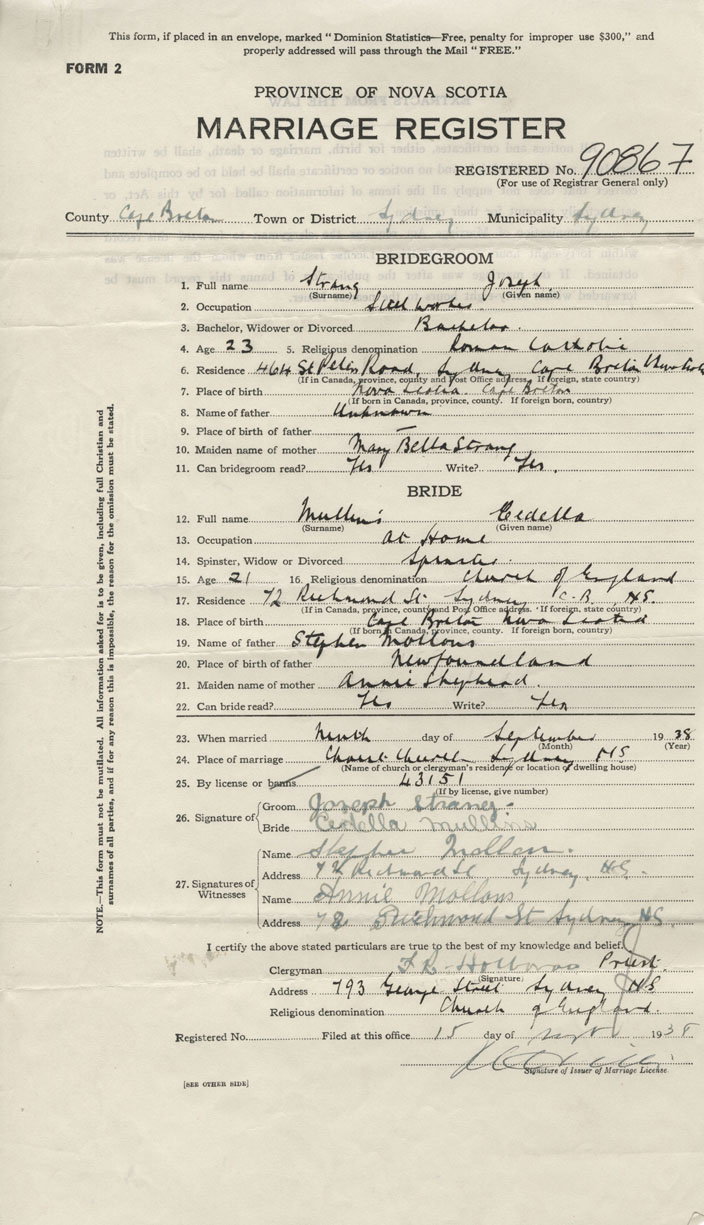 This form, if placed in an envelope, marked "Dominion Statistics—Free, penalty for improper use $300," and
properly addressed will pass through the Mail "FREE."
FORM 2
PROVINCE OF NOVA SCOTIA
MARRIAGE REGISTER
REGISTERED No. 90867
(For use of Registrar General only)
County Cape Breton Town or District Sydney Municipality Sydney
BRIDEGROOM
1. Full name Strang Joseph
(Surname) (Given name)
2. Occupation Steel worker
3. Bachelor, Widower or Divorced Bachelor.
4. Age 23 5. Religious denomination Roman Catholic
6. Residence 464 St Peters Road, Sydney Cape Breton Nova Scotia
(If in Canada, province, county and Post Office address. If foreign, state country)
7. Place of birth Nova Scotia. Cape Breton
(If born in Canada, province, county. If foreign born, country)
8. Name of father Unknown
9. Place of birth of father —
10. Maiden name of mother Mary Bella Strang
11. Can bridegroom read? Yes Write? Yes.
BRIDE
12. Full name Mullins Cedella
(Surname) (Given name)
13. Occupation at Home
14. Spinster, Widow or Divorced Spinster.
15. Age 21 16. Religious denomination Church of England
17. Residence 72 Richmond St. Sydney C.B. NS
(If in Canada, province, county and Post Office address. If foreign, state country)
18. Place of birth Cape Breton Nova Scotia
(If born in Canada, province, county. If foreign born, country)
19. Name of father Stephen Mollons
20. Place of birth of father Newfoundland
21. Maiden name of mother Annie Shepherd.
22. Can bride read? Yes Write? Yes
23. When married Ninth day of September 1938
(Month) (Year)
24. Place of marriage Christ Church Sydney NS
(Name of church or clergyman's residence or location of dwelling house)
25. By license or banns 43151
(If by license, give number)
26. Signature of Groom Joseph Strang.
Bride Cedella Mullins
27. Signatures of Witnesses
Name Stephen Mollons.
Address 72 Richmond St Sydney N.S.
Name Annie Mollons
Address 72 Richmond St Sydney NS.
I certify the above stated particulars are true to the best of my knowledge and belief.
Clergyman Priest.
(Signature.
Address 793 George Street Sydney NS
Religious denomination Church of England.
Registered No. Filed at this office 15 day of Sept 1938
Signature of Issuer of Marriage License.
[SEE OTHER SIDE]
NOTE.—This form must not be mutilated. All information asked for is to be given, including full Christian and
surnames of all parties, and if for any reason this is impossible, the reason for the omission must be stated.